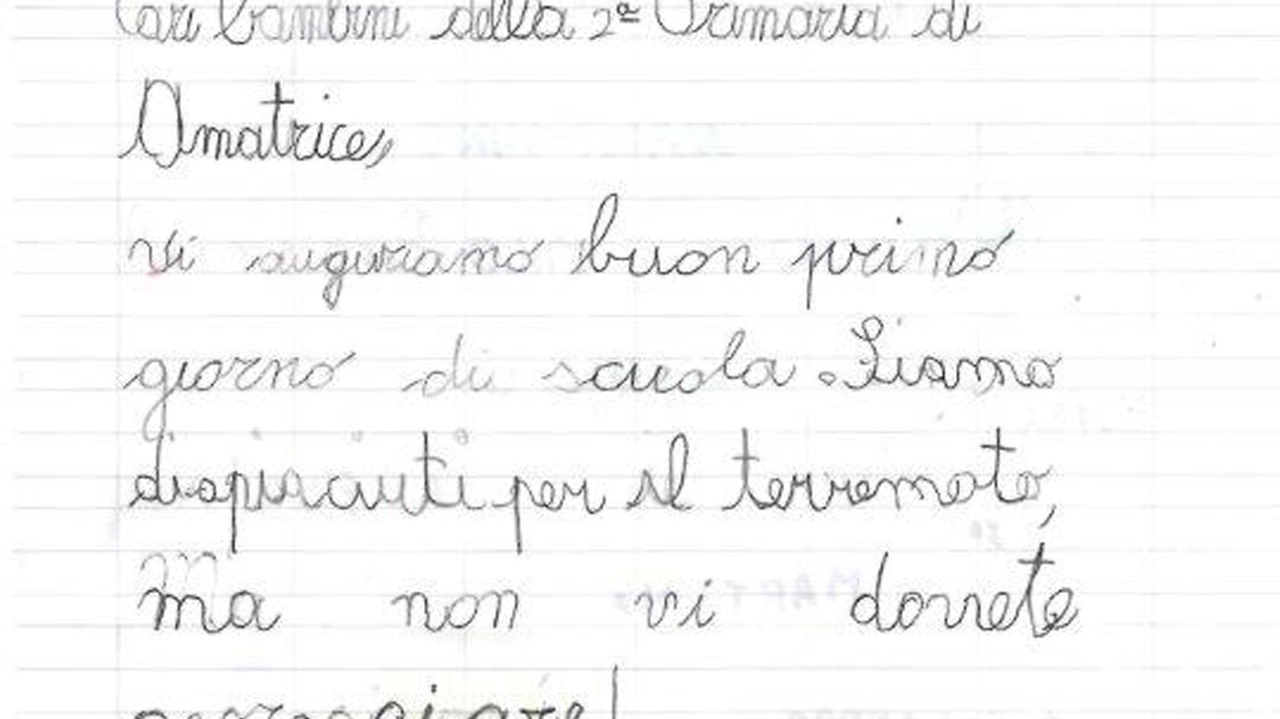 Cari bambini della 2ª Primaria di
Amatrice,
vi auguriamo buon primo
giorno di scuola. Siamo
dispiaciuti per il terremoto,
ma non vi dovrete